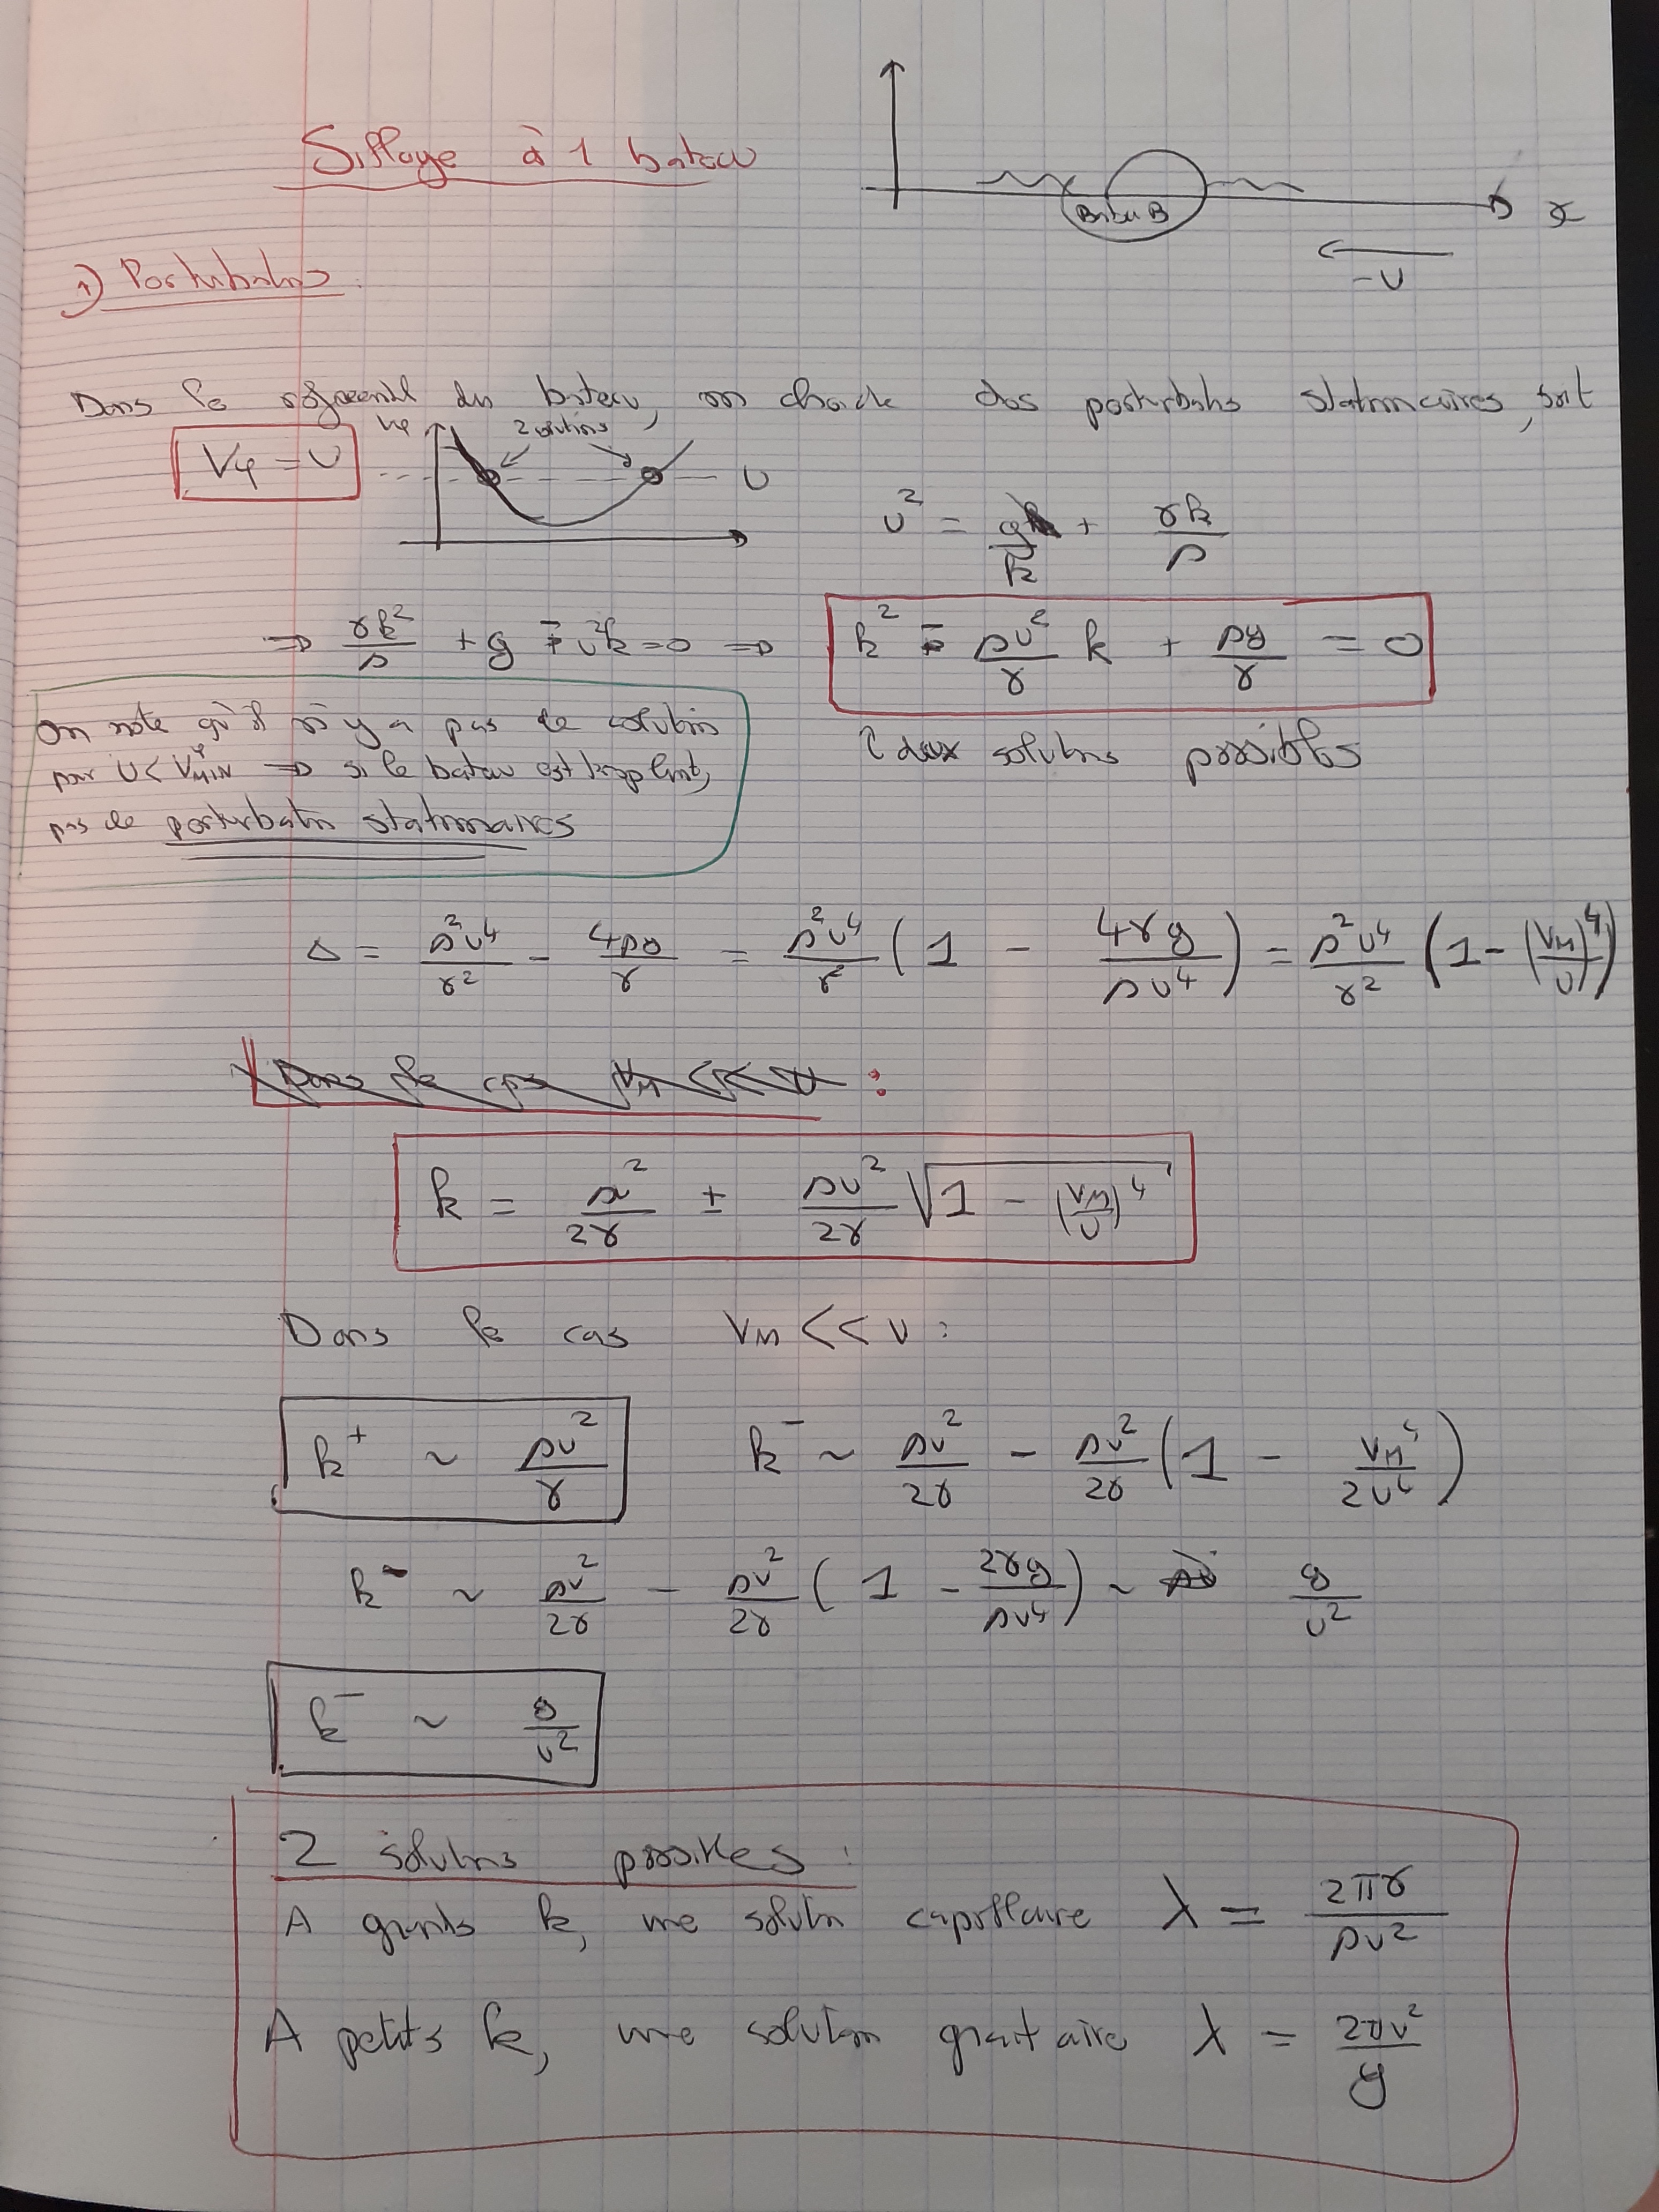 Sillage à 1 bateau
Bateau B
x
-U
1) Perturbations :
Dans le référentiel du bateau, on cherche des perturbations stationnaires, soit
Vφ = U
Vφ
2 solutions
U
U² = g/k + γk/ρ
⇒ γk²/ρ + g - U²k = 0 ⇒ k² - ρU²/γ k + ρg/γ = 0
2 deux solutions possibles
On note qu'il n'y a pas de solution
pour U < VφMIN ⇒ si le bateau est trop lent,
pas de perturbation stationnaires
Δ = ρ²U⁴/γ² - 4ρg/γ = ρ²U⁴/γ² (1 - 4γg/ρU⁴) = ρ²U⁴/γ² (1 - (VM/U)⁴)
Dans le cas VM << U :
k = ρU²/2γ ± ρU²/2γ √(1 - (VM/U)⁴)
Dans le cas VM << U :
k⁺ ~ ρU²/γ k⁻ ~ ρU²/2γ - ρU²/2γ (1 - VM⁴/2U⁴)
k⁻ ~ ρU²/2γ - ρU²/2γ (1 - 2γg/ρU⁴) ~ g/U²
k⁻ ~ g/U²
2 solutions possibles :
A grands k, une solution capillaire λ = 2πγ/ρU²
A petits k, une solution gravitaire λ = 2πU²/g